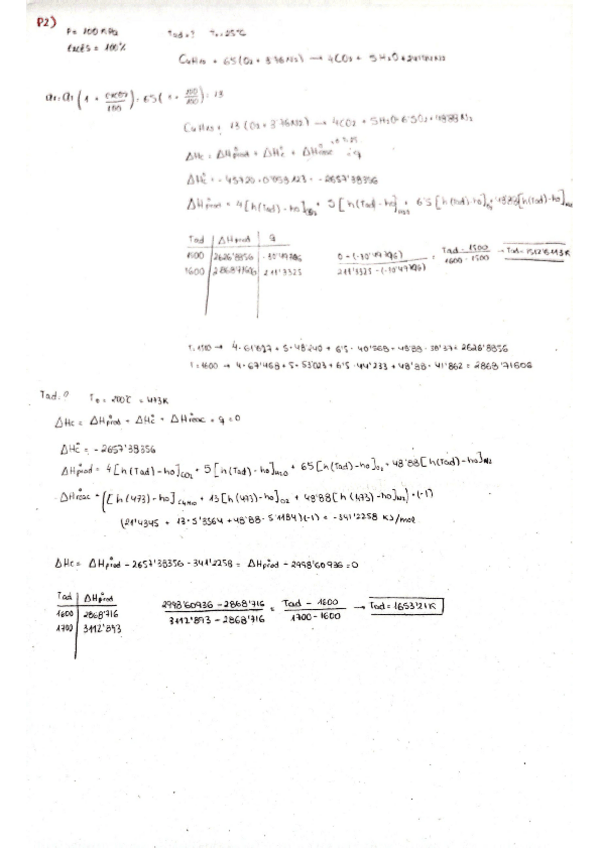 P2)
P = 100 KPa Tad = ? T₀ = 25ºC
Excés = 100%
C₄H₁₀ + 6'5(O₂ + 3'76N₂) → 4CO₂ + 5H₂O +
(1 + /100) = 6'5(1 + 100/100) = 13
C₄H₁₀ + 13(O₂ + 3'76N₂) → 4CO₂ + 5H₂O + 6'5O₂ + 48'88N₂
ΔHc = ΔH°prod + ΔH°c + ΔH°reac = q
ΔH°c = -45720 · 0'058123 = -2657'38356
ΔH°prod = 4[h(Tad)-h₀]CO₂ + 5[h(Tad)-h₀]H₂O + 6'5[h(Tad)-h₀]O₂ + 48'88[h(Tad)-h₀]N₂
Tad | ΔHprod | q
1500 | 2626'8856 | -30'49796
1600 | 2868'71606 | 211'3325
0-(-30'49796) / 211'3325-(-30'49796) = Tad - 1500 / 1600 - 1500 → Tad = 1512'6113K
T=1500 → 4· + 5·48'240 + 6'5·40'568 + 48'88· = 2626'8856
T=1600 → 4·67'468 + 5· + 6'5·44'233 + 48'88·41'862 = 2868'71606
Tad? T₀ = 200ºC = 473K
ΔHc = ΔH°prod + ΔH°c + ΔH°reac = q = 0
ΔH°c = -2657'38356
ΔH°prod = 4[h(Tad)-h₀]CO₂ + 5[h(Tad)-h₀]H₂O + 6'5[h(Tad)-h₀]O₂ + 48'88[h(Tad)-h₀]N₂
ΔH°reac = ([h(473)-h₀]C₄H₁₀ + 13[h(473)-h₀]O₂ + 48'88[h(473)-h₀]N₂)·(-1)
(21'4345 + 13·5'3564 + 48'88·5'1184)(-1) = -341'2258 KJ/mol
ΔHc = ΔH°prod - 2657'38356 - 341'2258 = ΔH°prod - 2998'60936 = 0
Tad | ΔH°prod
1600 | 2868'716
1700 | 3112'893
2998'60936 - 2868'716 / 3112'893 - 2868'716 = Tad - 1600 / 1700 - 1600 → Tad = 1653'21K